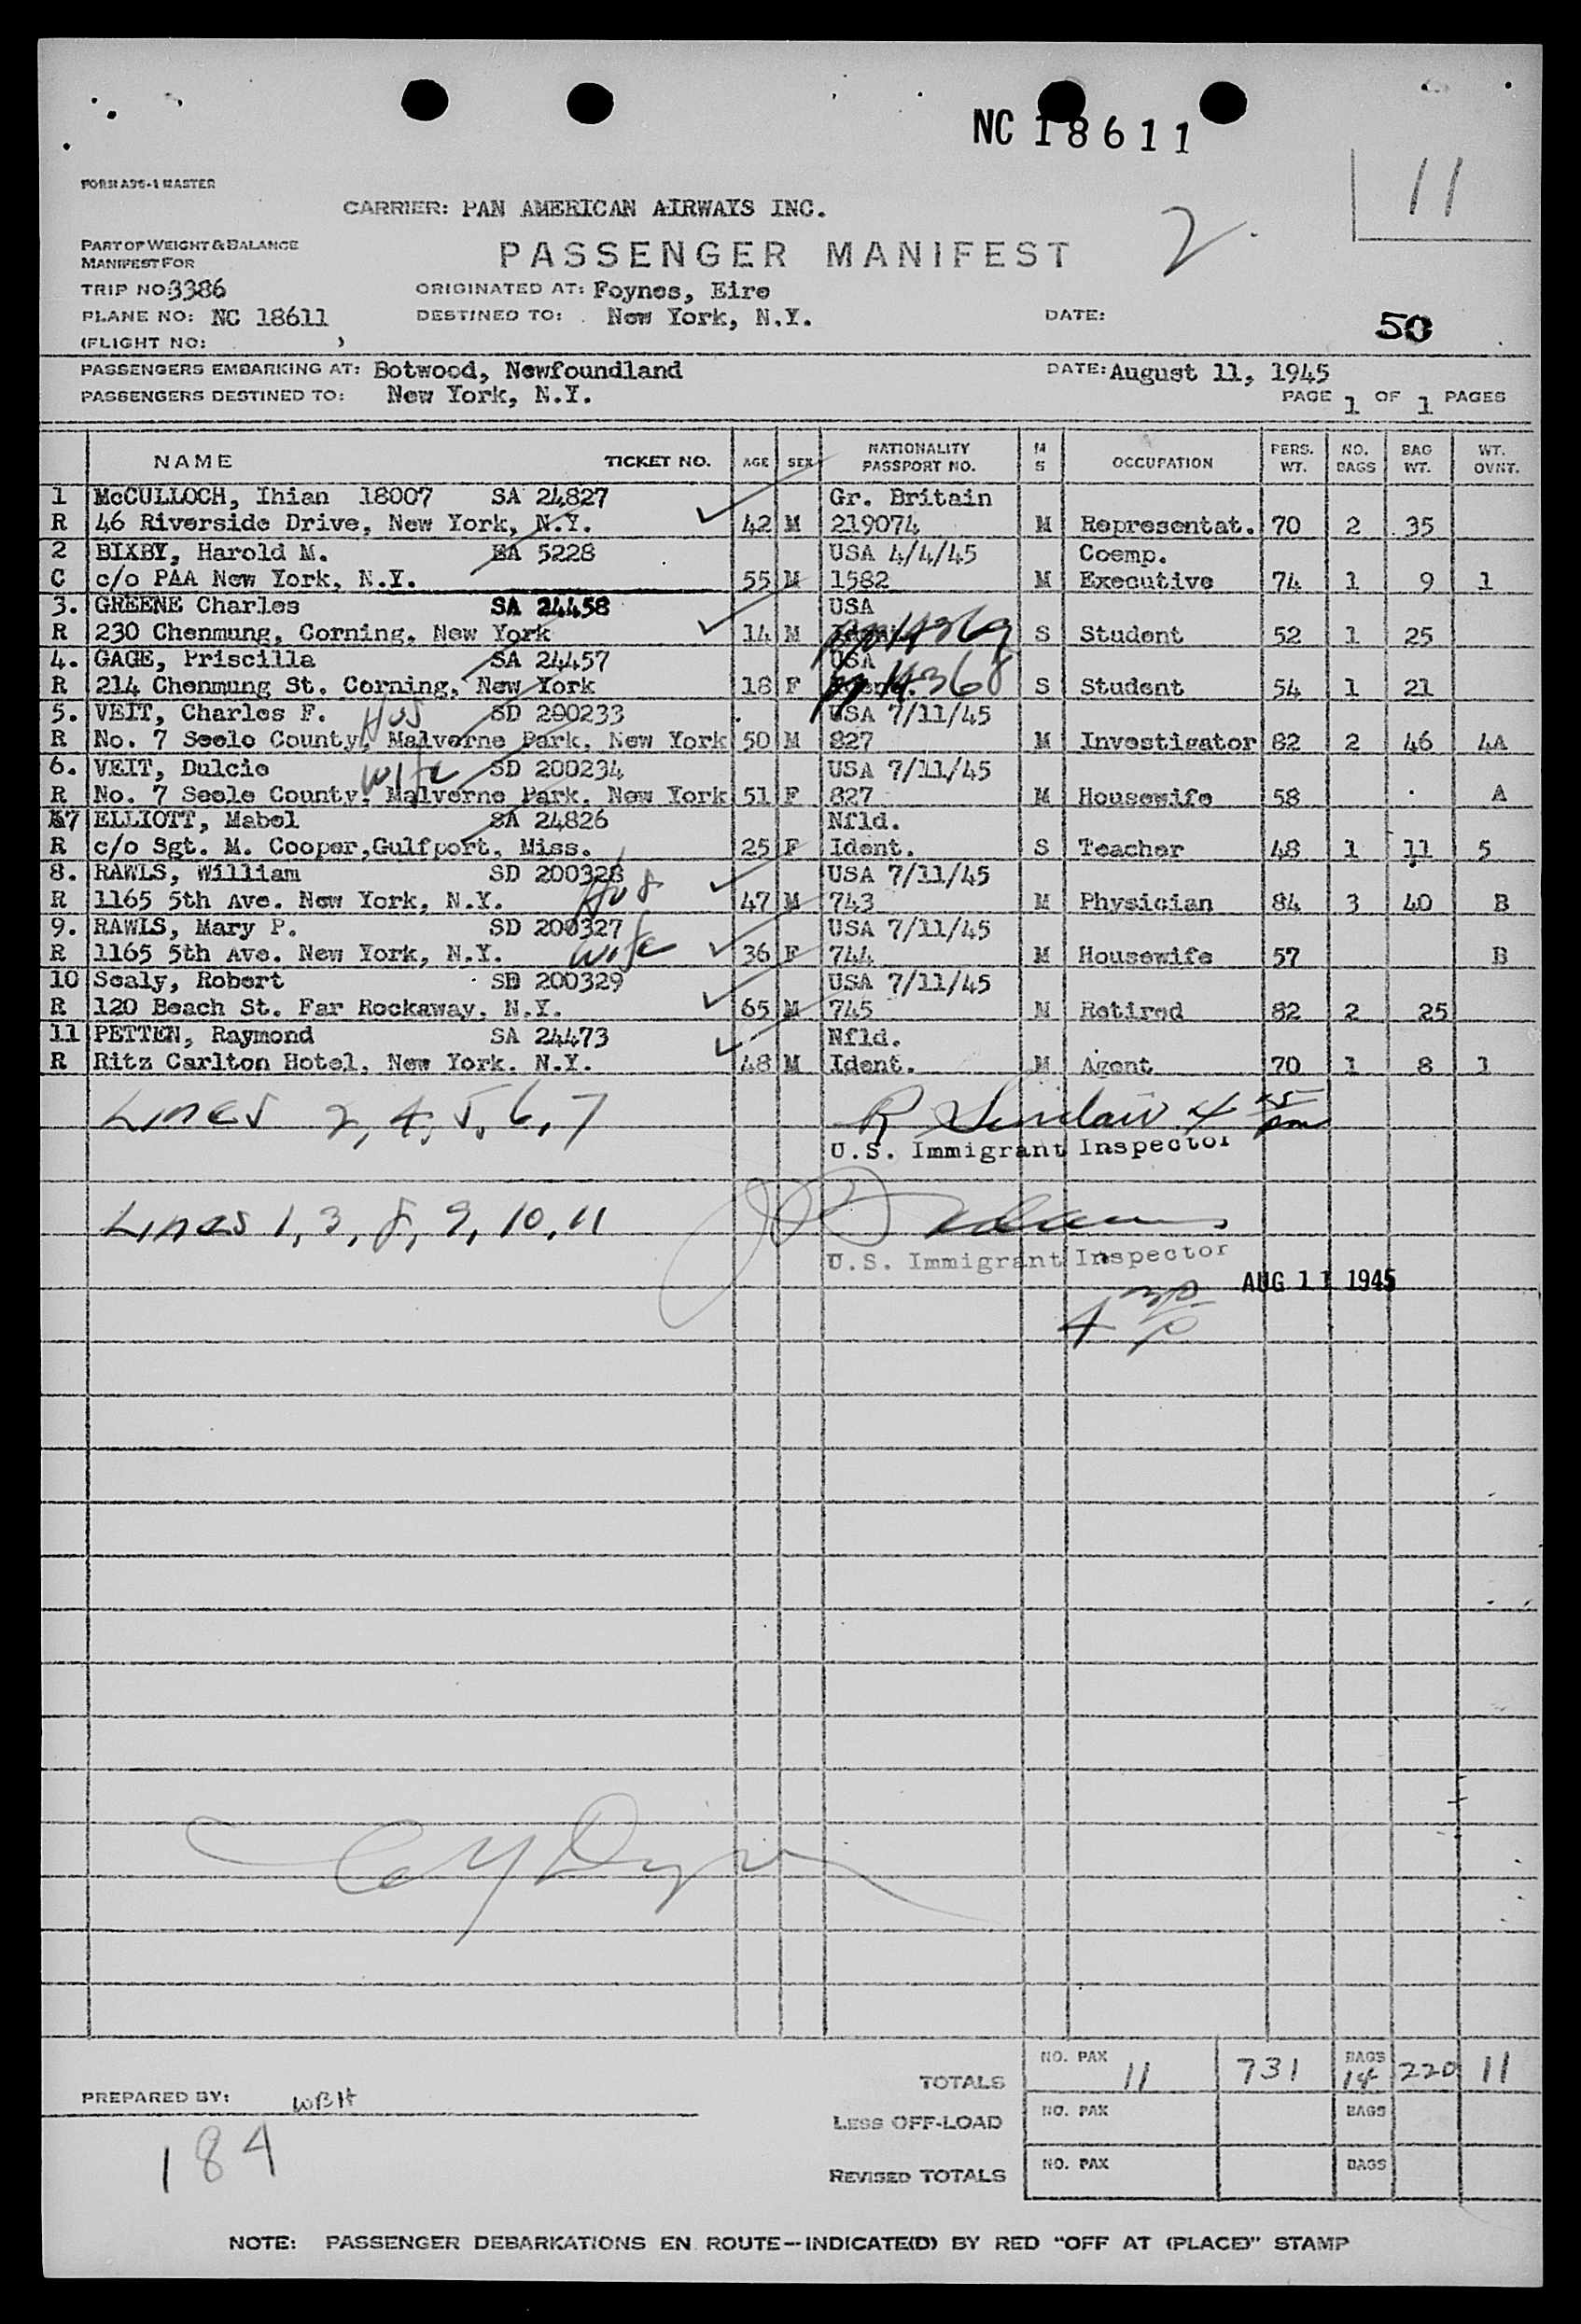 NC 18611
11
FORM A96-1 MASTER
CARRIER: PAN AMERICAN AIRWAYS INC.
2.
PART OF WEIGHT & BALANCE
MANIFEST FOR
PASSENGER MANIFEST
TRIP NO: 3386 ORIGINATED AT: Foynes, Eire
PLANE NO: NC 18611 DESTINED TO: New York, N.Y. DATE:
50
(FLIGHT NO: )
PASSENGERS EMBARKING AT: Botwood, Newfoundland DATE: August 11, 1945
PASSENGERS DESTINED TO: New York, N.Y. PAGE 1 OF 1 PAGES
NAME TICKET NO. AGE SEX NATIONALITY PASSPORT NO. M S OCCUPATION PERS. WT. NO. BAGS BAG WT. WT. OVNT.
1 McCULLOCH, Ihian 18007 SA 24827 Gr. Britain
R 46 Riverside Drive, New York, N.Y. 42 M 219074 M Representat. 70 2 35
2 BIXBY, Harold M. EA 5228 USA 4/4/45 Coemp.
C c/o PAA New York, N.Y. 55 M 1582 M Executive 74 1 9 1
3. GREENE Charles SA 24458 USA
R 230 Chenmung, Corning, New York 14 M 14369 S Student 52 1 25
4. GAGE, Priscilla SA 24457 USA
R 214 Chenmung St. Corning, New York 18 F 14368 S Student 54 1 21
5. VEIT, Charles F. Hus SD 200233 USA 7/11/45
R No. 7 Seelo County, Malverne Park, New York 50 M 827 M Investigator 82 2 46 4A
6. VEIT, Dulcie wife SD 200234 USA 7/11/45
R No. 7 Seele County, Malverne Park, New York 51 F 827 M Housewife 58 A
7 ELLIOTT, Mabel SA 24826 Nfld.
R c/o Sgt. M. Cooper,Gulfport, Miss. 25 F Ident. S Teacher 48 1 11 5
8. RAWLS, William SD 200328 USA 7/11/45
R 1165 5th Ave. New York, N.Y. Hus 47 M 743 M Physician 84 3 40 B
9. RAWLS, Mary P. SD 200327 USA 7/11/45
R 1165 5th Ave. New York, N.Y. wife 36 F 744 M Housewife 57 B
10 Sealy, Robert SD 200329 USA 7/11/45
R 120 Beach St. Far Rockaway, N.Y. 65 M 745 M Retired 82 2 25
11 PETTEN, Raymond SA 24473 Nfld.
R Ritz Carlton Hotel, New York. N.Y. 48 M Ident. M Agent 70 1 8 1
Lines 2, 4, 5, 6, 7 R Sinclair 4 45 pm
U.S. Immigrant Inspector
Lines 1, 3, 8, 9, 10, 11
U.S. Immigrant Inspector
AUG 11 1945
4 30 p
TOTALS NO. PAX 11 731 BAGS 14 220 11
PREPARED BY: WBH
LESS OFF-LOAD NO. PAX BAGS
184
REVISED TOTALS NO. PAX BAGS
NOTE: PASSENGER DEBARKATIONS EN ROUTE—INDICATE(D) BY RED "OFF AT (PLACE)" STAMP